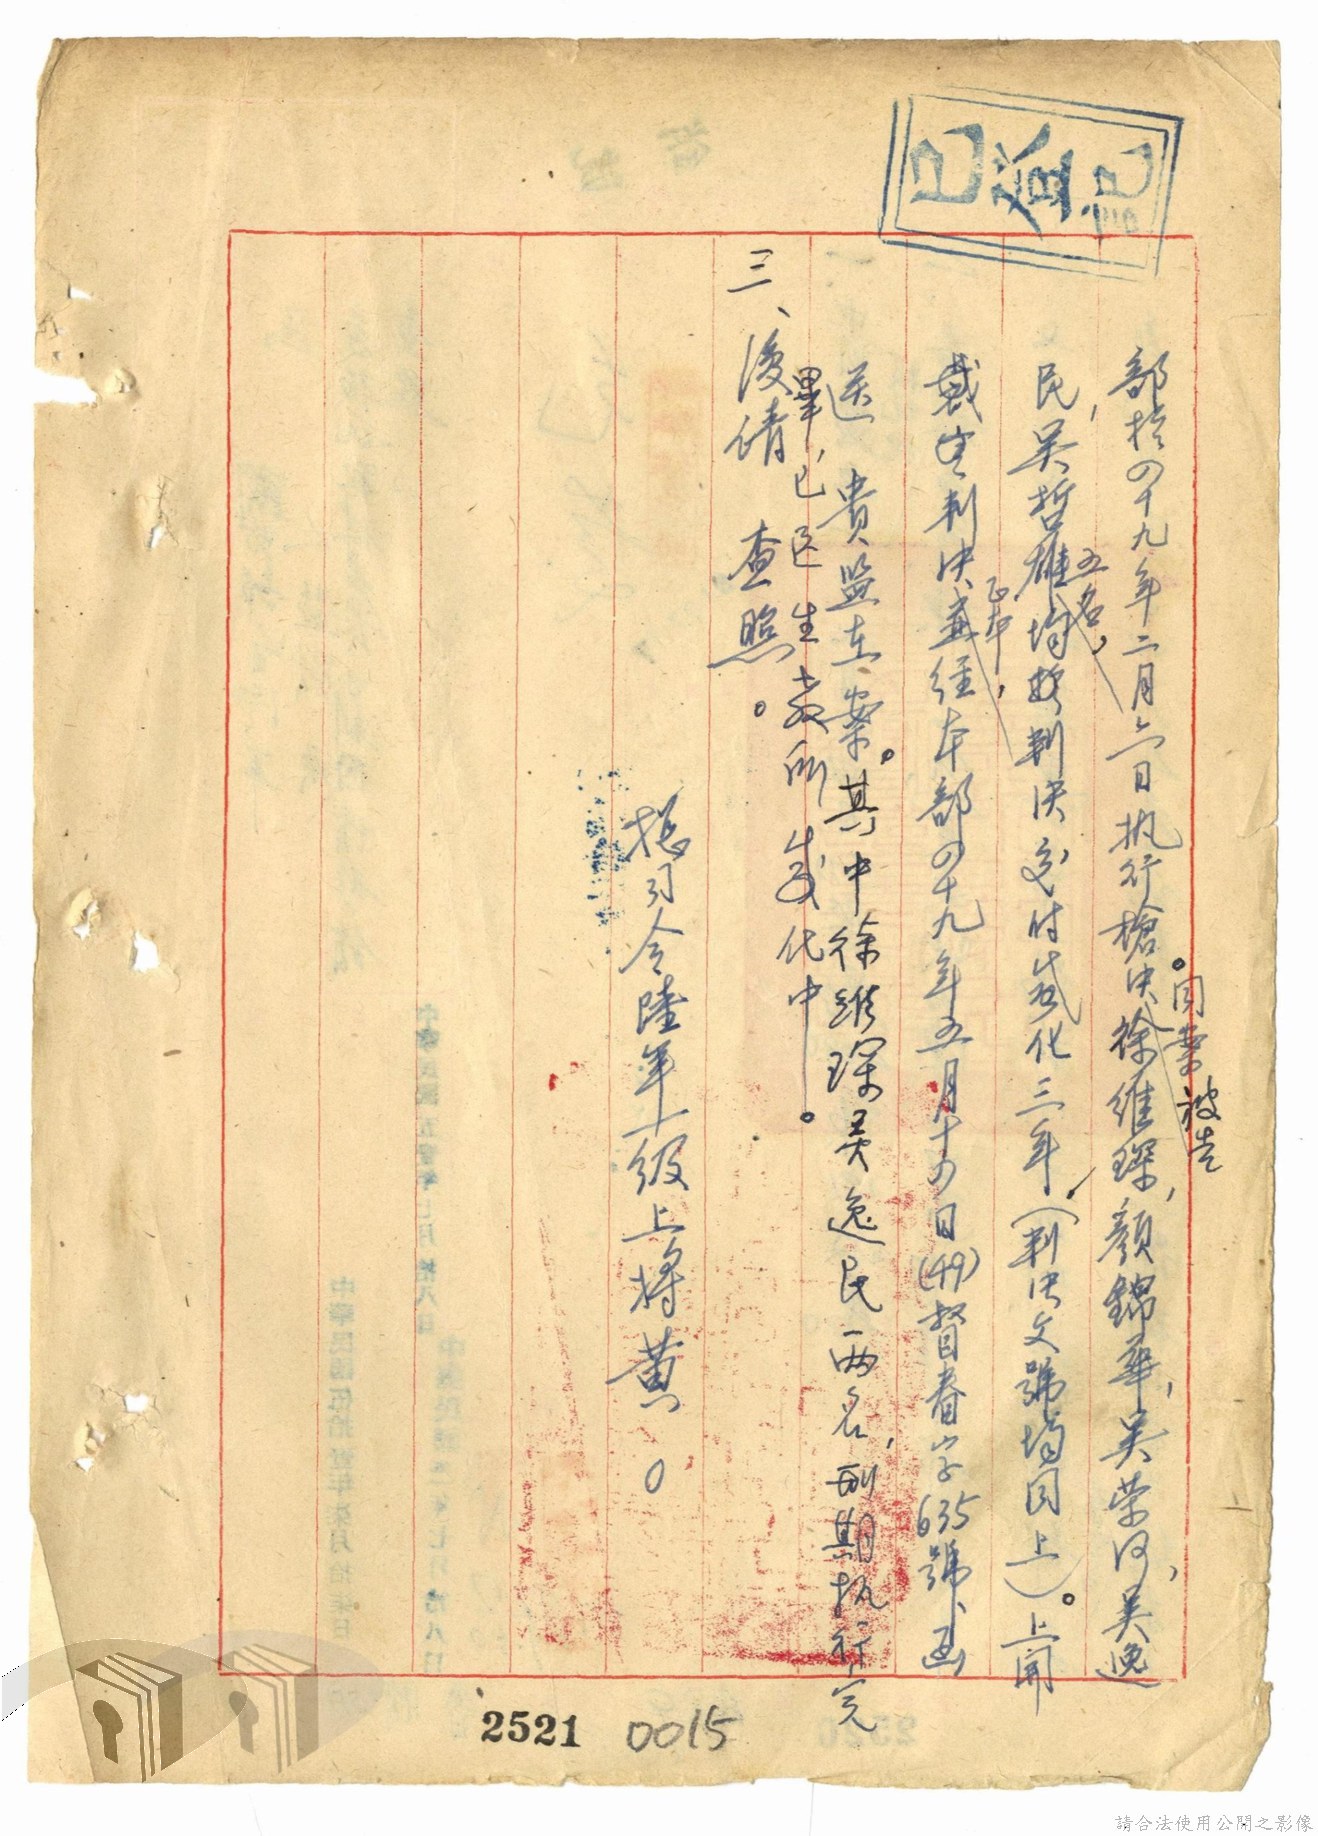 已登記
部於四十九年二月六日执行槍決。同案被告徐維琛,顏錦華,吳荣河,吳逸
民,吳哲雄五名,均按判決交付感化三年,(判決文號均同上)。上開
裁定判決正本,並經本部四十九年五月十四日(49)督春字635號函
送 貴監在案。其中徐維琛吳逸民两名,刑期执行完
畢,已送生敎所感化中。
三、復请 查照。
總司令陸軍一級上將黄○
2521 0015
請合法使用公開之影像